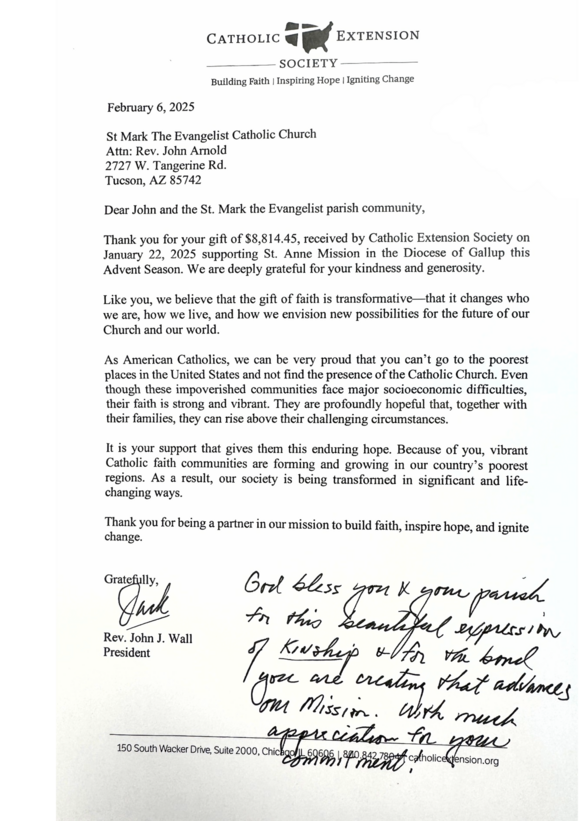 CATHOLIC EXTENSION
SOCIETY
Building Faith | Inspiring Hope | Igniting Change
February 6, 2025
St Mark The Evangelist Catholic Church
Attn: Rev. John Arnold
2727 W. Tangerine Rd.
Tucson, AZ 85742
Dear John and the St. Mark the Evangelist parish community,
Thank you for your gift of $8,814.45, received by Catholic Extension Society on
January 22, 2025 supporting St. Anne Mission in the Diocese of Gallup this
Advent Season. We are deeply grateful for your kindness and generosity.
Like you, we believe that the gift of faith is transformative—that it changes who
we are, how we live, and how we envision new possibilities for the future of our
Church and our world.
As American Catholics, we can be very proud that you can't go to the poorest
places in the United States and not find the presence of the Catholic Church. Even
though these impoverished communities face major socioeconomic difficulties,
their faith is strong and vibrant. They are profoundly hopeful that, together with
their families, they can rise above their challenging circumstances.
It is your support that gives them this enduring hope. Because of you, vibrant
Catholic faith communities are forming and growing in our country's poorest
regions. As a result, our society is being transformed in significant and life-
changing ways.
Thank you for being a partner in our mission to build faith, inspire hope, and ignite
change.
Gratefully,
Jack
Rev. John J. Wall
President
God bless you & your parish
for this beautiful expression
of Kinship & for the bond
you are creating that advances
our Mission. With much
appreciation for your
commitment.
150 South Wacker Drive, Suite 2000, Chicago, IL 60606 | catholicextension.org